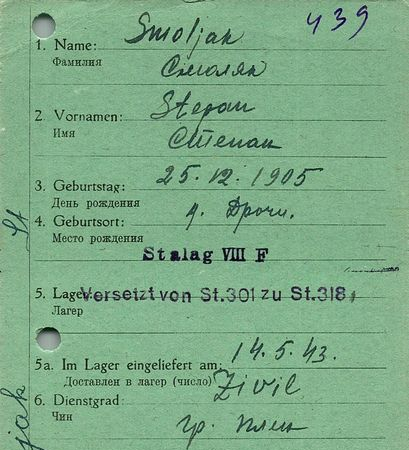 439
1. Name: Smoljak
Фамилия Смоляк
2. Vornamen: Stepan
Имя Степан
3. Geburtstag: 25. 12. 1905
День рождения
4. Geburtsort: д. Дрочи.
Место рождения
Stalag VIII F
5. Lager
Versetzt von St.301 zu St.318,
Лагер
5a. Im Lager eingeliefert am: 14. 5. 43.
Доставлен в лагер (число)
6. Dienstgrad: Zivil
Чин гр. плен
St
jak